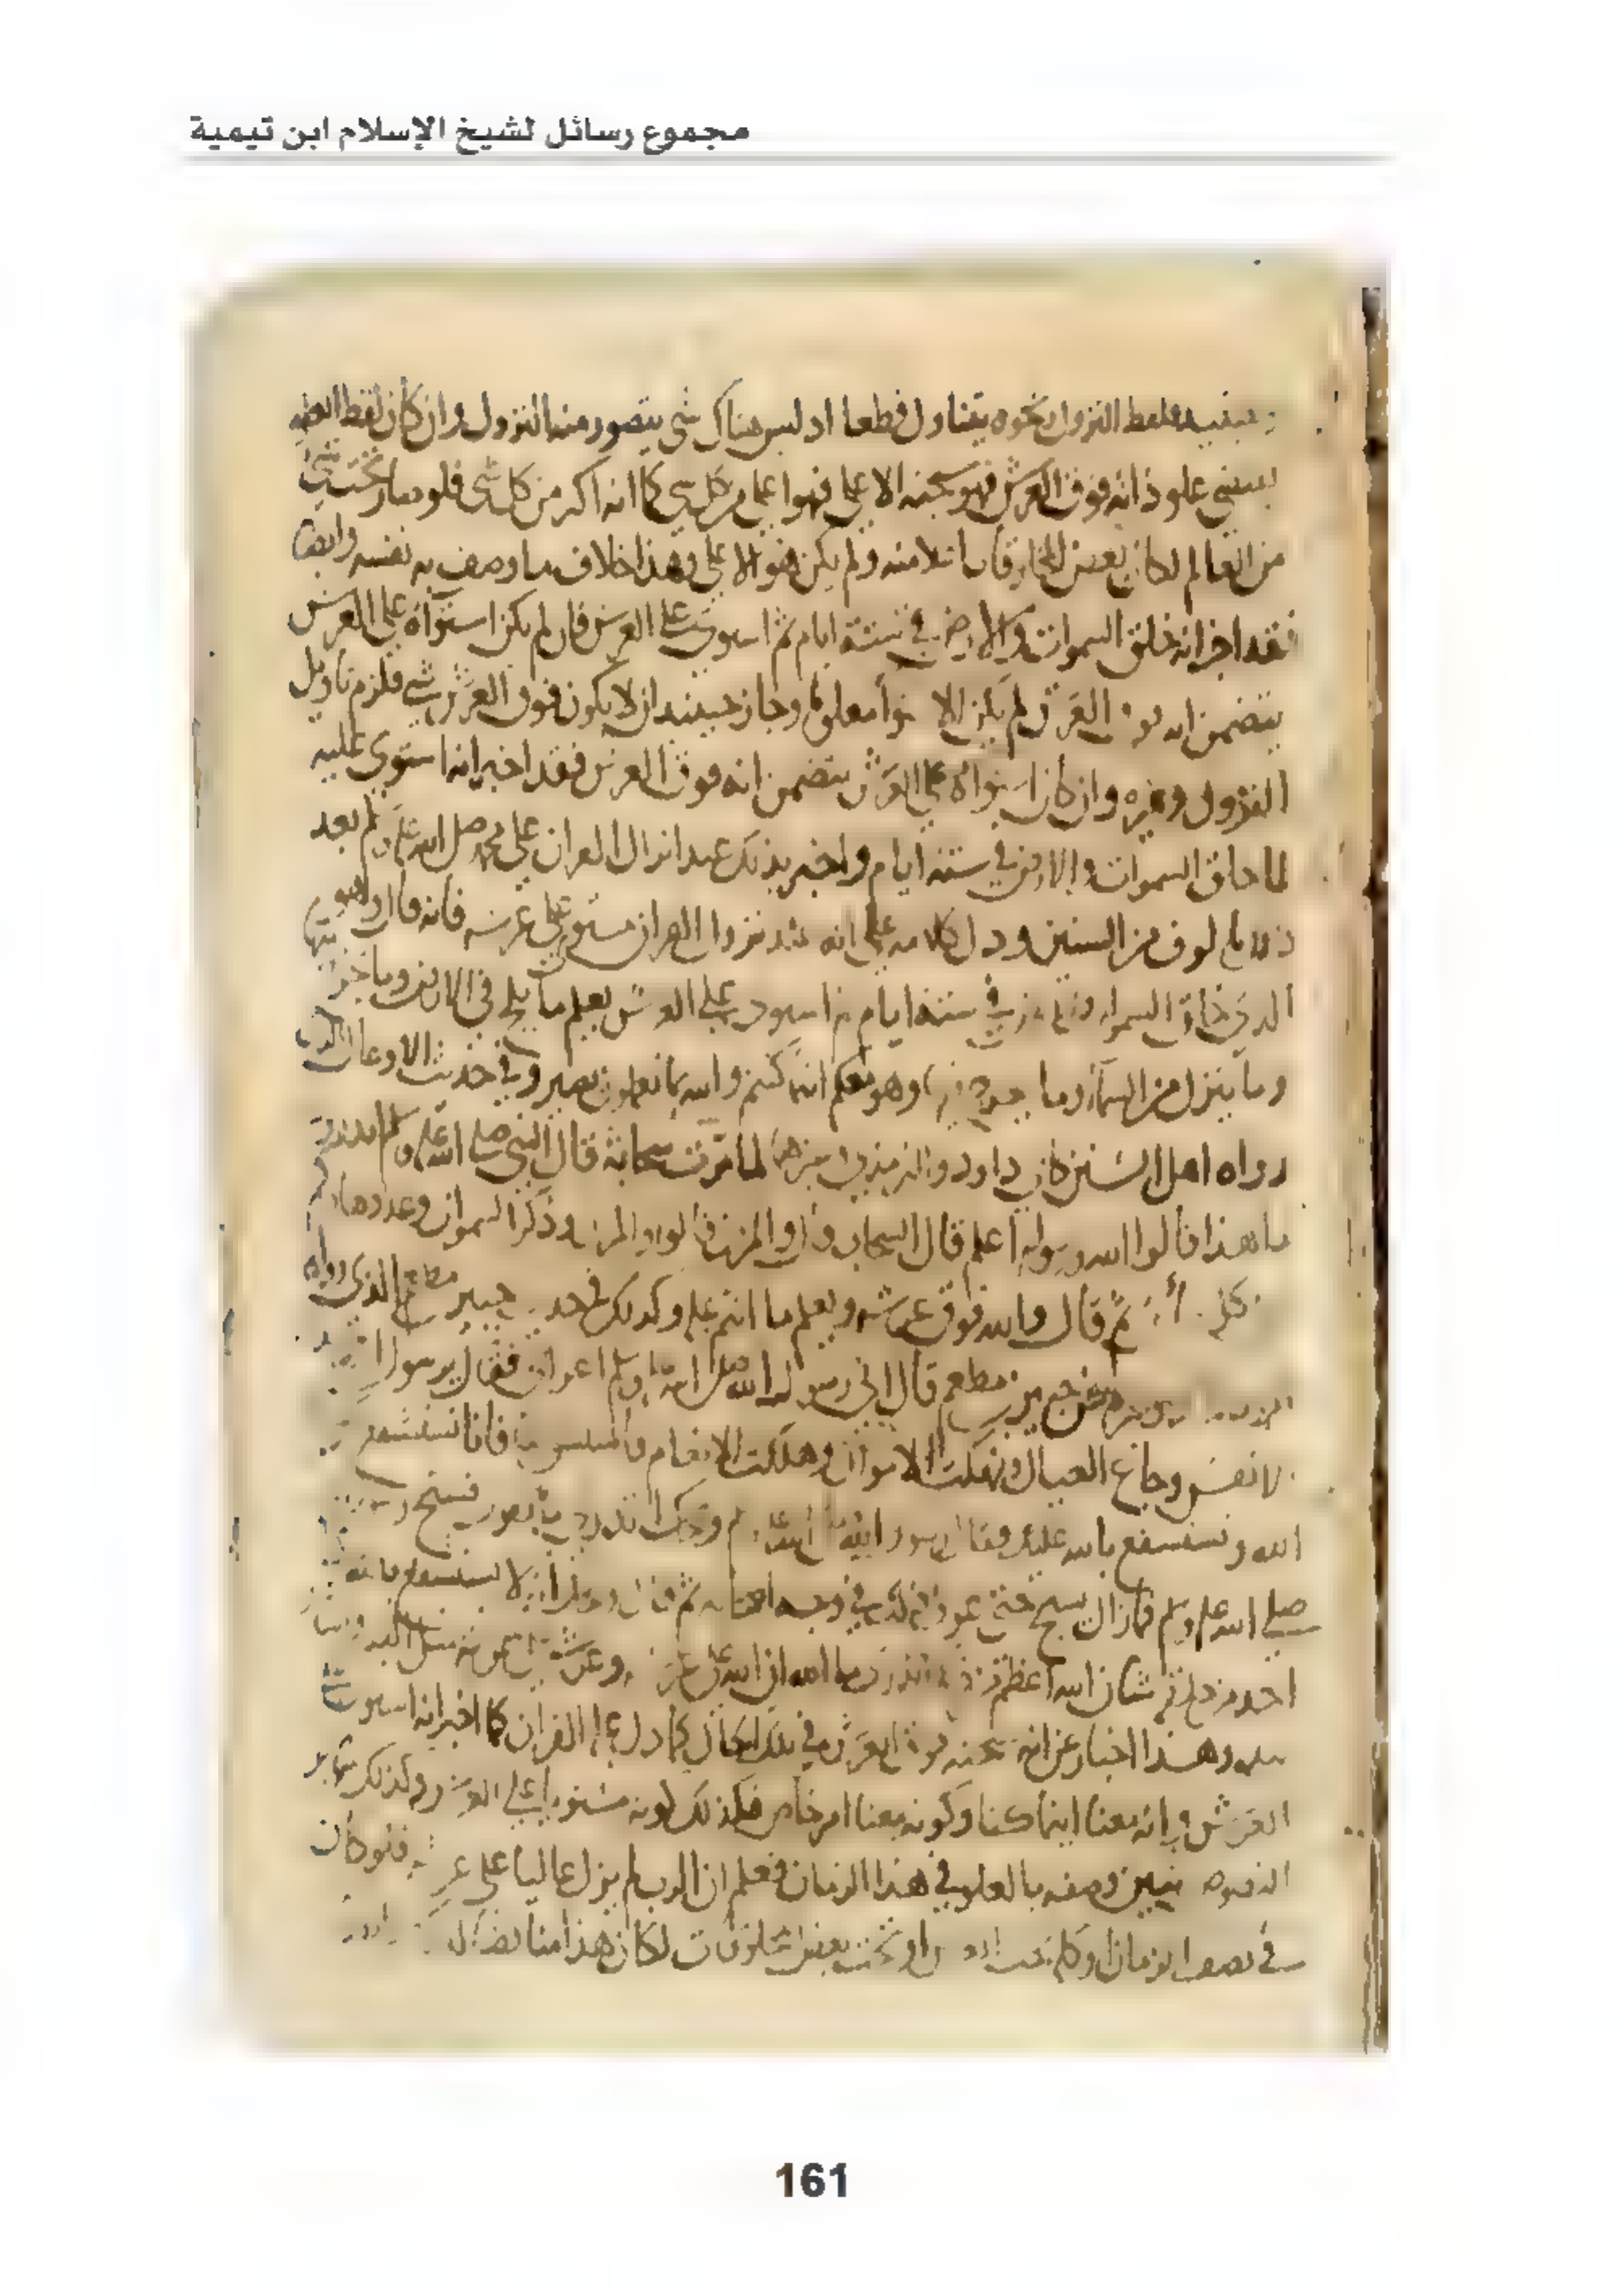 مجموع رسائل لشيخ الإسلام ابن تيمية
النزول ونحوه يتناول قطعا اد ليس هناك شي يتصور منه النزول وان كان لفظ العلو
يقتضي علو ذاته فوق العرش فهو سبحنه الاعلى فهو اعلى من كل شي كما انه اكبر من كل شي فلو صار تحت شي
من العالم لكان بعض المخلوقات اعلا منه ولم يكن هو الاعلى وهذا خلاف ما وصف به نفسه وايضا
فقد اخبر انه خلق السموات والارض في ستة ايام ثم استوى على العرش فان لم يكن استواه على العرش
يتضمن انه فوق العرش لم يكن الاستوا معلوما وجاز حينيد ان لا يكون فوق العرش شي فلزم تاويل
النزول وغيره وان كان استواه على العرش يتضمن انه فوق العرش فقد اخبر انه استوى عليه
لما خلق السموات والارض في ستة ايام واخبر بذلك عند انزال القران على محمد صلى الله عليه وسلم بعد
ذلك بالوف من السنين ودل كلامه على انه عند نزول القران مستو على عرشه فانه قال هو
الذي خلق السموات والارض في ستة ايام ثم استوى على العرش يعلم ما يلج في الارض وما يخرج منها
وما ينزل من السماء وما يعرج فيها وهو معكم اينما كنتم والله بما تعملون بصير وفي حديث الاوعال الذي
رواه اهل السنن كابي داود والترمذي وغيرهما لما مرت سحابة قال النبي صلى الله عليه وسلم اتدرون
ما هذا قالوا الله ورسوله اعلم قال السحاب قال والمزن قالوا والمزن وذكر السموات وعددها
ثم قال والله فوق عرشه ويعلم ما انتم عليه وكذلك في حديث جبير بن مطعم الذي رواه
عن جبير بن مطعم قال اتى رسول الله صلى الله عليه وسلم اعرابي فقال يرسول الله
الانفس وجاع العيال ونهكت الاموال وهلكت الانعام فاستسق لنا فانا نستشفع بك
الله ونستشفع بالله عليك فقال رسول الله صلى الله عليه وسلم ويحك اتدري ما تقول وسبح رسول
صلى الله عليه وسلم فما زال يسبح حتى عرف ذلك في وجوه اصحابه ثم قال ويحك انه لا يستشفع بالله
احد من خلقه شان الله اعظم من ذلك اتدري ما الله ان الله على عرشه وعرشه على سمواته مثل القبة
وهذا اخبار عن انه سبحنه فوق العرش في تلك الحال كما دل عليه القران كما اخبر انه استوى على
العرش وانه معنا اينما كنا وكونه معنا امر خاص فكذلك كونه مستويا على العرش وكذلك ساير
النصوص تبين وصفه بالعلو في هذا الزمان فعلم ان الرب لم يزل عاليا على عرشه فلو كان
في نصف الزمان او كله تحت العرش او تحت بعض المخلوقات لكان هذا مناقضا لذلك
161